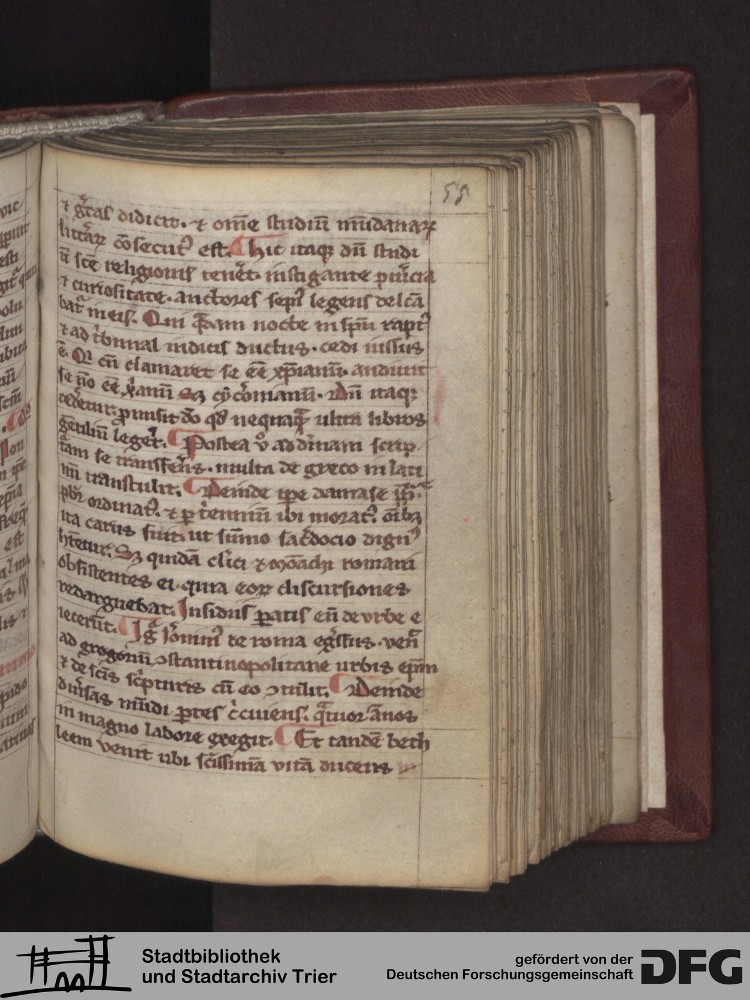 55
⁊ gr̄cas didicit. ⁊ om̄e studiū mūdanaꝝ
litt̄aꝝ ꝯsecutꝰ est. ¶ hic itaqꝫ dū studi
ū sc̄e religionis tenēt. instigante pūicia
⁊ curiositate. auctores sepiꝰ legens delc̄a
bat̄ in eis. Qui q̄dam nocte in sp̄u raptꝰ
⁊ ad t̄bunal iudicis ductus. cedi iussus
ē. Qi cū clamaret se eē xp̄ianū. audiuit
se nō eē x̄anū sꝫ cyc̄onianū. Dū itaqꝫ
cedetur. ꝓmisit dō qd̓ nequaq̄ ultra libros
gentiliū leget̄. ¶ Postea v̊ ad diuinam scrip
t̄am se transfer̄s. multa de greco in lati
nū transtulit. ¶ Deinde ip̄e damase
pbr̄ ordinatꝰ. ⁊ ꝑ t̄ienniū ibi moratꝰ. oībꝫ
ita carus fuit. ut sūmo sac̄docio dignꝰ
hr̄etur. Sꝫ quidā cl̄ici ⁊ mōachi romani
obsistentes ei quia eoꝝ discursiones
redarguebat. Insidiis ꝑatis eū de vrbe e
iecerūt. ¶ Ig̅ ieronimꝰ de roma egr̄ssus. ven̄
ad gregoriū ꝯstantinopolitane urbis ep̄m
⁊ de sc̄is sc̄pturis cū eo ꝯtulit. ¶ Deinde
diu̓sas mūdi ꝑtes c̄cuiens. q̄tuor annos
in magno labore exegit. ¶ Et tandē beth
leem venit ubi sc̄issimā vitā ducens
Stadtbibliothek
und Stadtarchiv Trier
gefördert von der
Deutschen Forschungsgemeinschaft
DFG